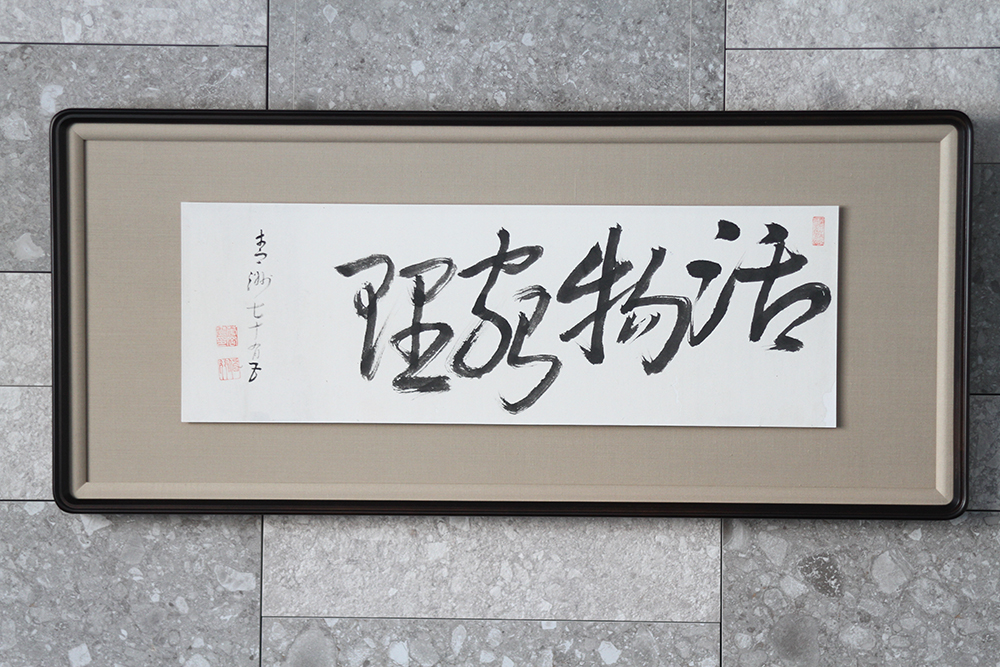 活物窮理
青洲七十有五